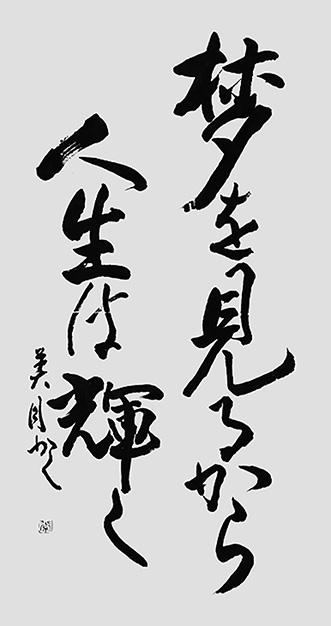 夢を見るから
人生は輝く
美月かく